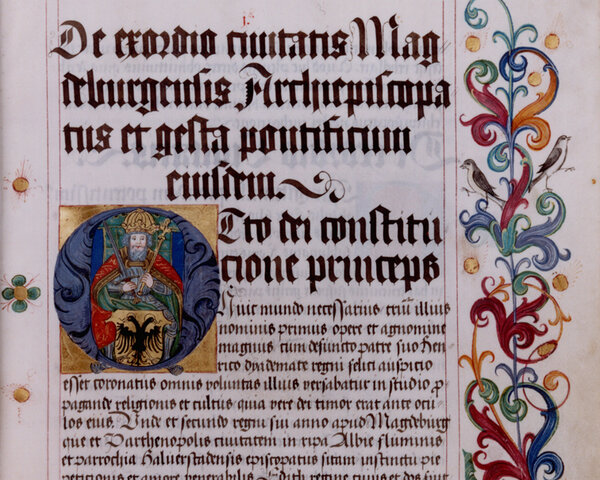 j.
De exordio ciuitatis Mag
deburgensis Archiepiscopa
tus et gesta pontificum
eiusdem.
Otto dei constitu
cione princeps
huic mundo necessarius triũ illius
nominis primus opere et agnomine
magnus cum defuncto patre suo hen
rico diademate regni felici auspicio
esset coronatus omnis voluntas illius versabatur in studio p̱
pagande religionis et cultus quia vere dei timor erat ante ocu
los eius. Unde et secundo regni sui anno apud Magdeburg
que et Parthenopolis ciuitatem in ripa Albie fluminis
et parrochia Halverstadensis episcopatus sitam instinctu pie
petitionis et amore venerabilis Edith regine cuius et dos fuit